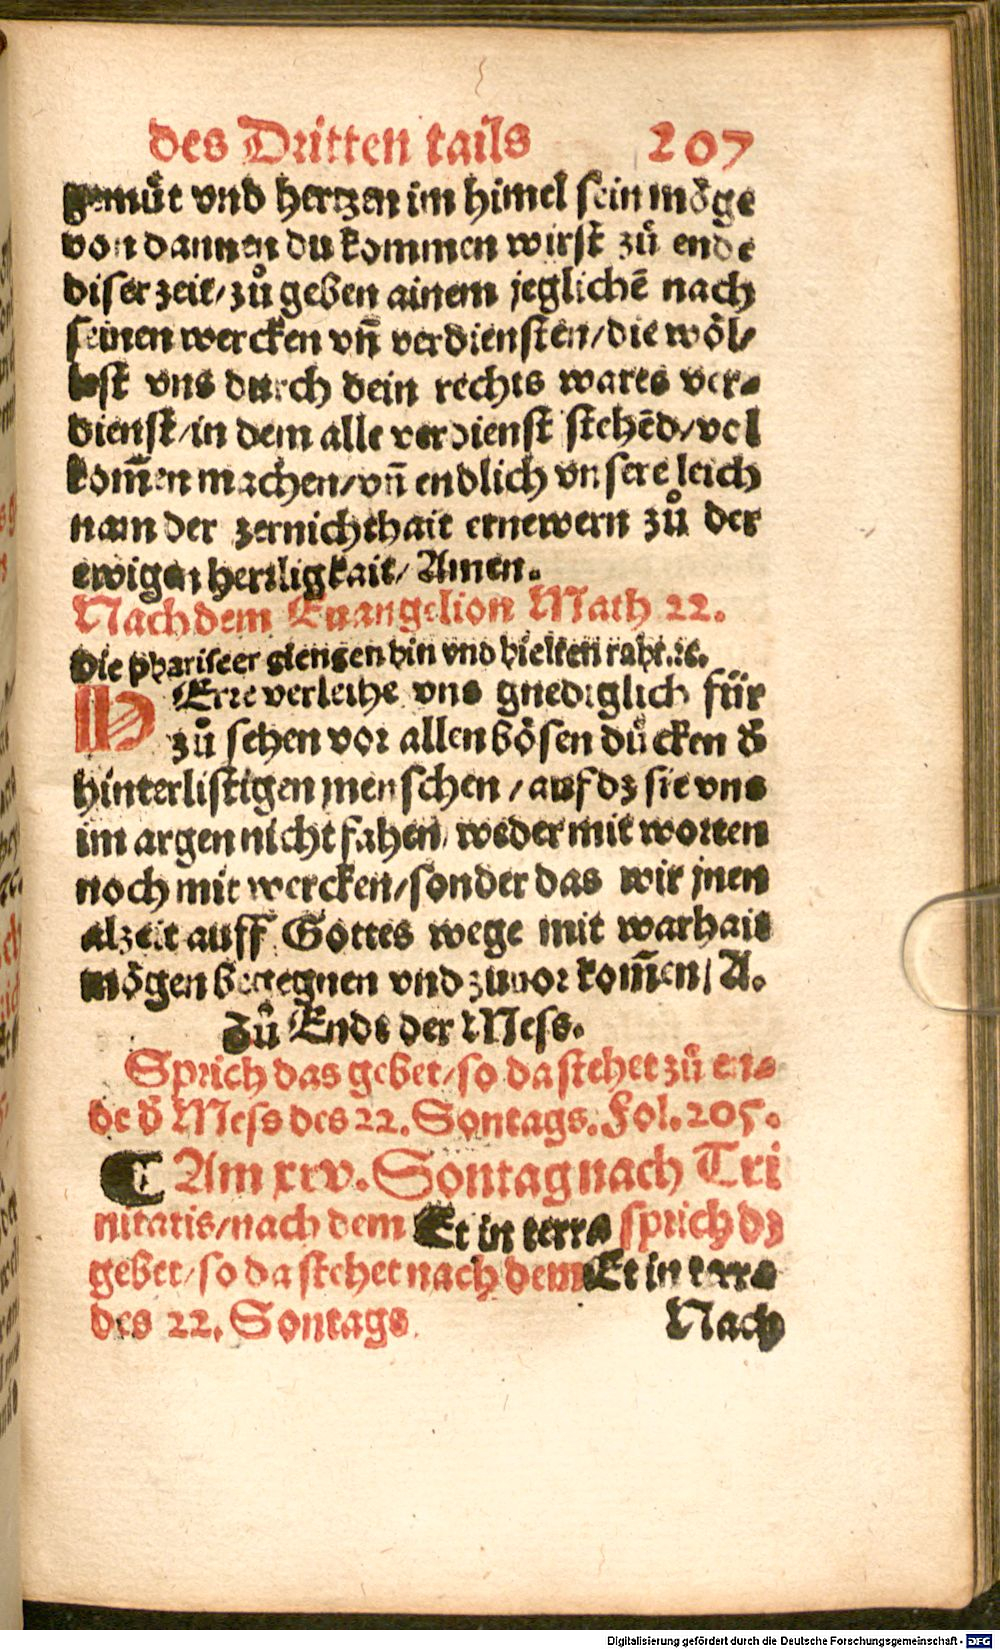 des Dritten tails 207
gemuͤt vnd hertzen im himel sein moͤge
von dannen du kommen wirst zuͦ ende
diser zeit/ zuͦ geben ainem jeglichē nach
seinen wercken vn̄ verdiensten/ die woͤl⸗
lest vns durch dein rechts wares ver⸗
dienst/ in dem alle verdienst stehēd/ vol
kom̄en machen/ vn̄ endlich vnsere leich
nam der zernichthait ernewern zuͦ der
ewigen herrligkait/ Amen.
Nach dem Euangelion Math 22.
Die phariseer giengen hin vnd hielten raht.ꝛc.
HErre verleihe vns gnediglich für
zuͦ sehen vor allen boͤsen duͤcken d̄
hinterlistigen menschen / auf dz sie vns
im argen nicht fahen/ weder mit worten
noch mit wercken/ sonder das wir jnen
alzeit auff Gottes wege mit warhait
moͤgen begegnen vnd zuuor kom̄en/ A.
Zuͦ Ende der Mess.
Sprich das gebet/ so da stehet zuͦ en⸗
de d̄ Mess des 22. Sontags. Fol. 205.
¶ Am xxv. Sontag nach Tri
nitatis/ nach dem Et in terra sprich dz
gebet/ so da stehet nach dem Et in terra
des 22. Sontags.
Nach
Digitalisierung gefördert durch die Deutsche Forschungsgemeinschaft - DFG